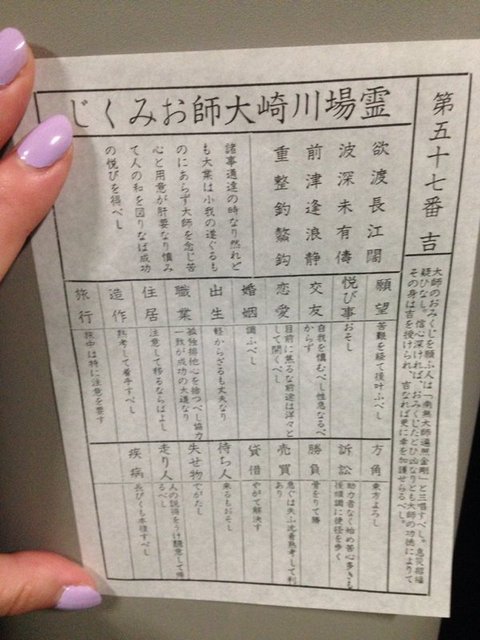 霊場川崎大師おみくじ
第五十七番 吉
大師のおみくじを願ふ人は「南無大師遍照金剛」と三唱すべし。息災招福
疑ひなし。信心深ければ、おみくじたとひ凶なりとも大師の功徳によりて
その身は吉を授けられ、吉なれば更に幸を加護せらるべし。
欲渡長江闊
波深未有儔
前津逢浪静
重整釣鰲鈎
諸事通達の時なり然れど
も大業は小我の遂ぐるも
のにあらず大師を念じ苦
心と用意が肝要なり慎み
て人の和を図りなば成功
の悦びを得べし
願望 苦難を経て後叶ふべし
悦び事 おそし
交友 自我を慎むべし性急なるべ
からず
恋愛 目前に焦るな前途は洋々と
して開くべし
婚姻 調ふべし
出生 軽からざるも丈夫なり
職業 孤独排他心を捨つべし協力
一致が成功の大道なり
住居 注意して移るならばよし
造作 熟考して着手すべし
旅行 旅中は特に注意を要す
方角 東方よろし
訴訟 助力者なく始め苦心多きも
後順調に捷径を歩く
勝負 骨をりて勝
売買 急ぐは失ふ沈着熟考して利
あり
貸借 やがて解決す
待ち人 来るもおそし
失せ物 でがたし
走り人 人の説得をうけ翻意して帰
るべし
疾病 長びくも本復すべし